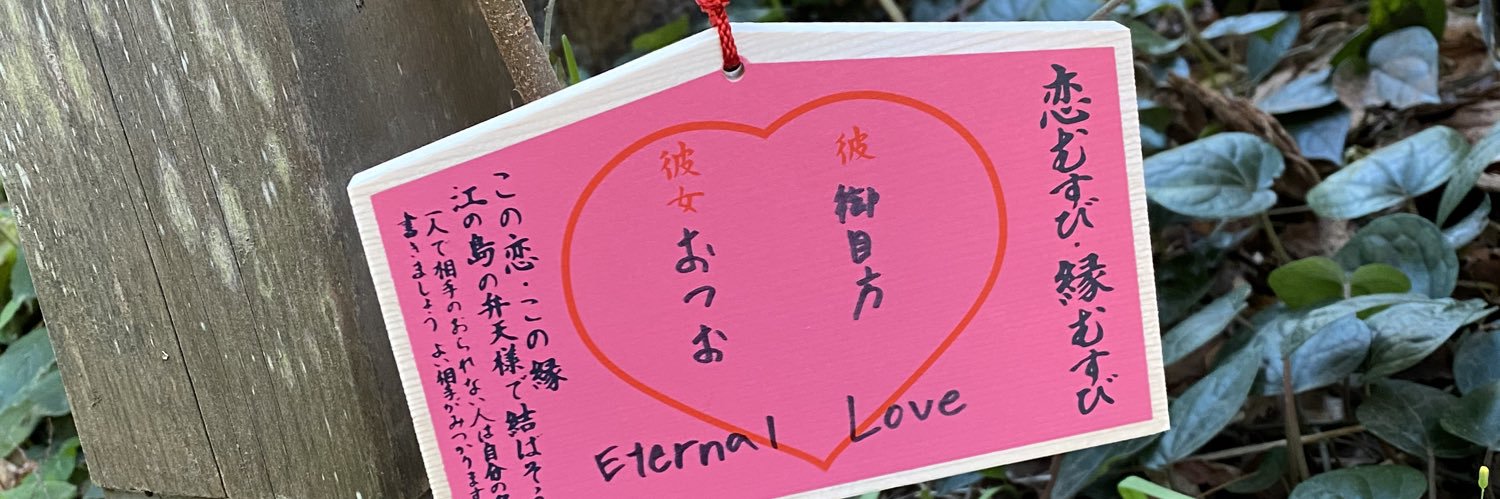 恋むすび・縁むすび
彼 御目方
彼女 おつお
Eternal Love
この恋・この縁
江の島の弁天様で結ばそう
一人で相手のおられない人は自分の
書きましょう よい相手がみつかります